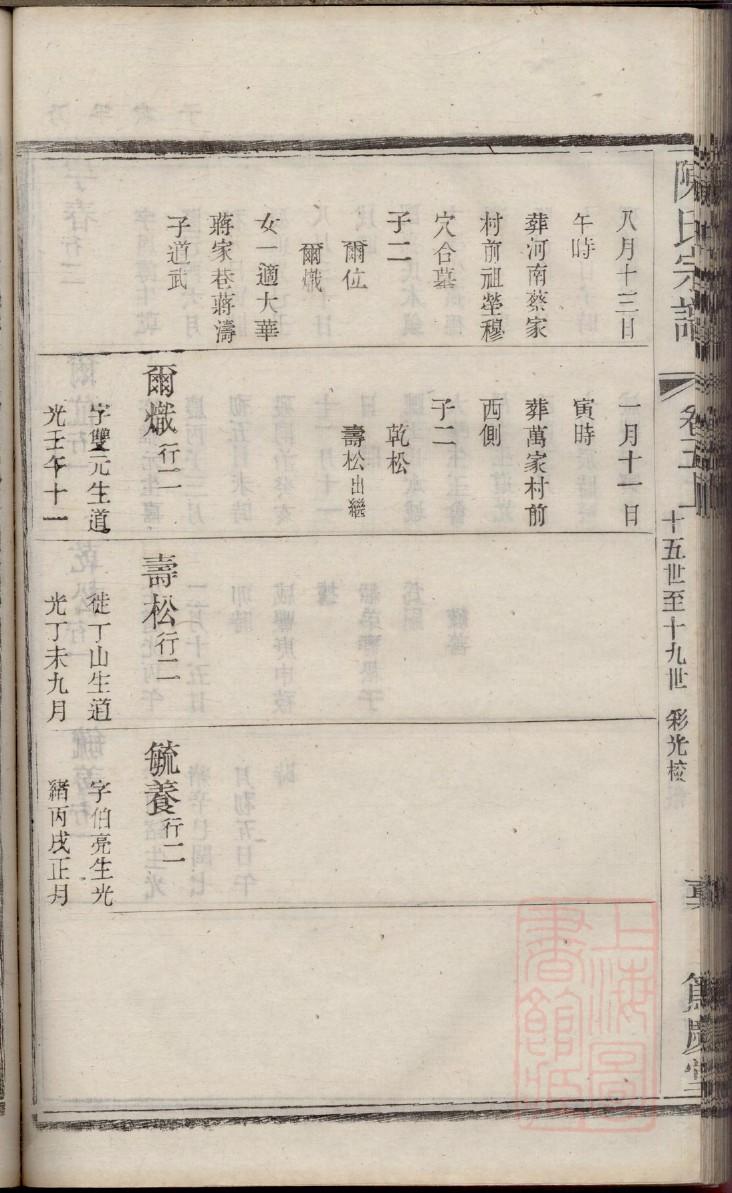 陳氏宗譜
卷五
十五世至十九世 彩光校
篤慶堂
八月十三日
午時
葬河南蔡家
村前祖塋穆
穴合墓
子二
爾位
爾熾
女一適大華
蔣家巷蔣濤
子道武
一月十一日
寅時
葬萬家村前
西側
子二
乾松
壽松出繼
爾熾行二
字雙元生道
光壬午十一
壽松行二
從丁山生道
光丁未九月
毓養行二
字伯亮生光
緒丙戌正月
上海圖
書館藏